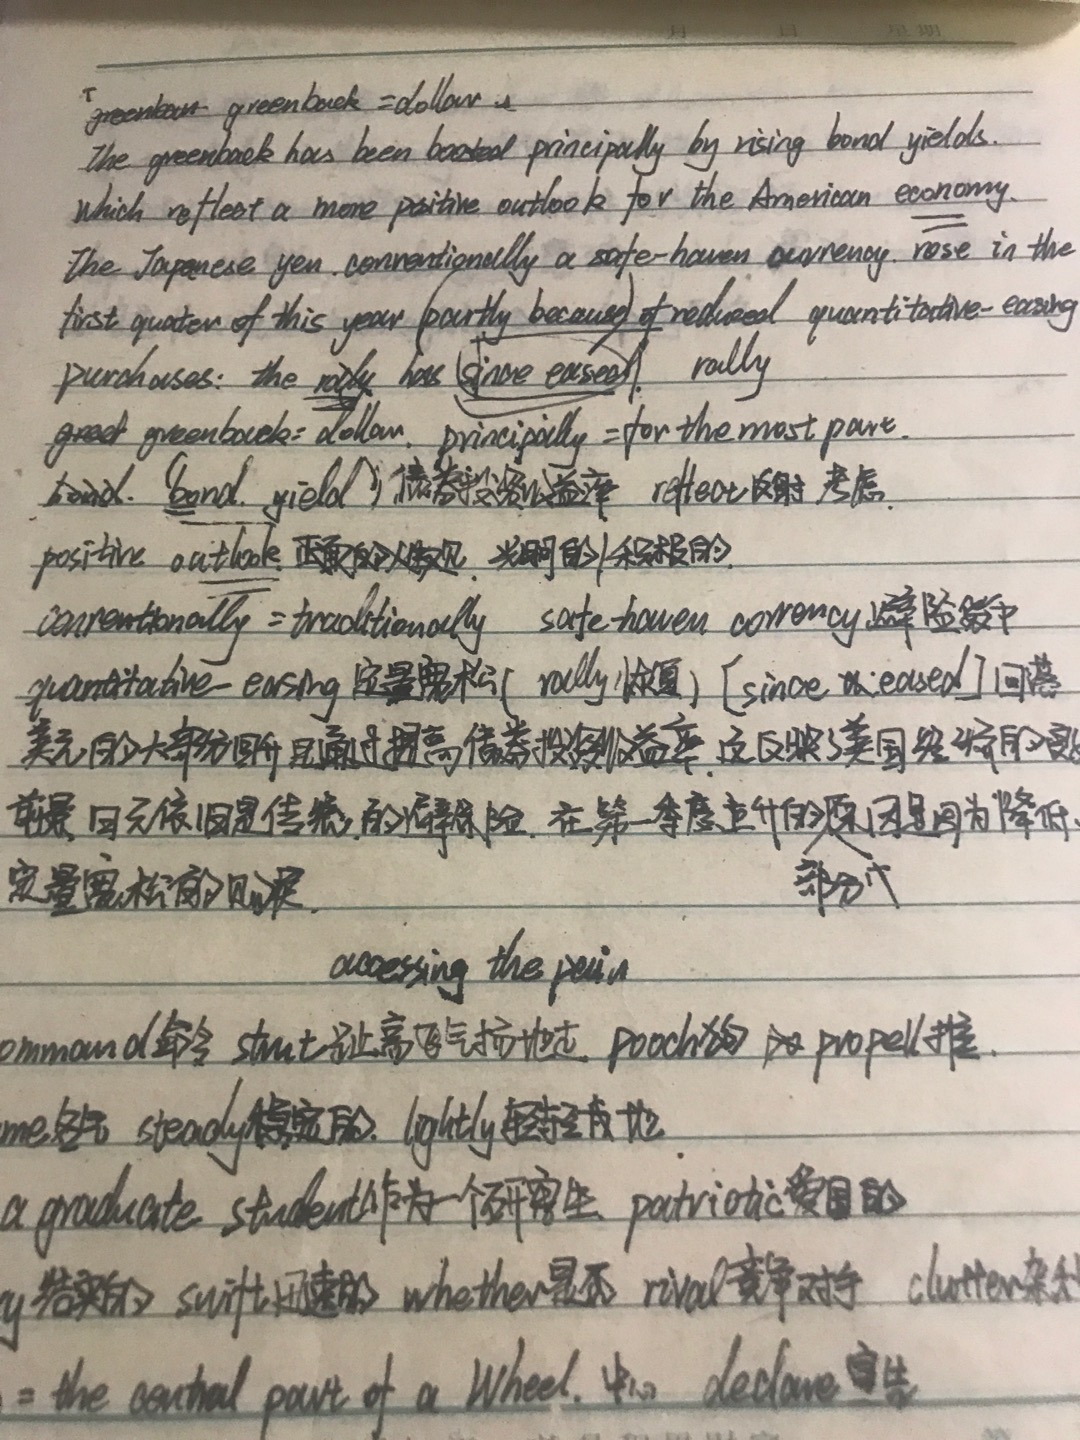 greenback = dollar
The greenback has been boosted principally by rising bond yields.
Which reflect a more positive outlook for the American economy.
The Japanese yen. conventionally a safe-haven currency. rose in the
first quater of this year (partly because) of reduced quantitative-easing
purchases: the rally has (since eased). rally
greenback = dollar. principally = for the most part.
bond. (bond. yield) 债券投资收益率 reflect 反射 考虑.
positive outlook. 正面的 光明的 积极的.
conventionally = traditionally safe-haven currency 避险货币
quantitative-easing 定量宽松 ( rally 恢复) [since eased] 回落
美元的大部分回升且通过提高债券投资收益率. 这反映了美国经济的
前景. 日元依旧是传统的避险. 在第一季度上升的原因是因为降低
部分
定量宽松的
accessing the
ommand 命令 strut 趾高气扬地走. pooch 狗 propell 推.
steady 稳定的. lightly 轻轻地
a graduate student 作为一个研究生. patriotic 爱国的
y 结实的 swift 迅速的 whether 是否 rival 竞争对手 clutter 杂
= the central part of a Wheel. 中心 declare 宣告